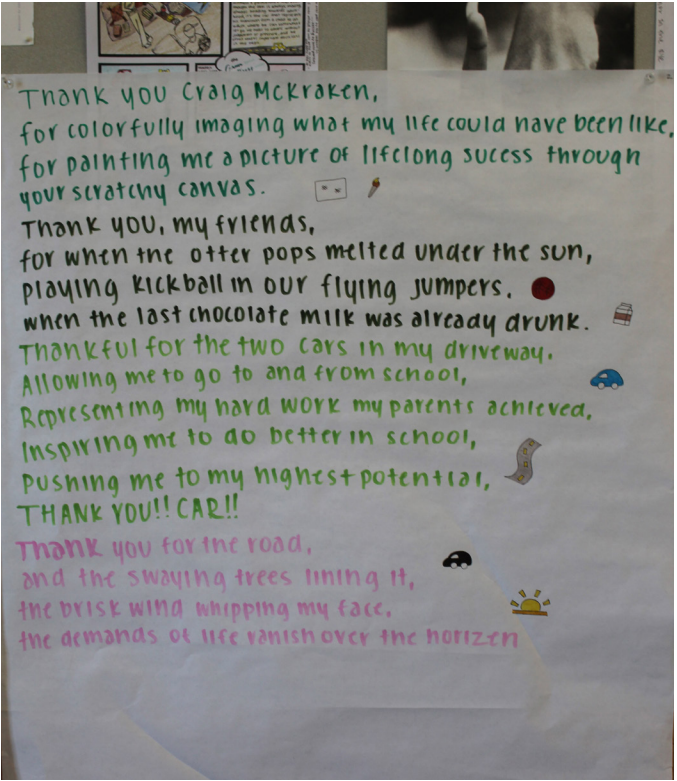 Thank you Craig McKraken,
for colorfully imaging what my life could have been like,
for painting me a picture of lifelong sucess through
your scratchy canvas.
Thank you, my friends,
for when the otter pops melted under the sun,
playing kickball in our flying jumpers.
when the last chocolate milk was already drunk.
Thankful for the two cars in my driveway.
Allowing me to go to and from school,
Representing my hard work my parents achieved,
Inspiring me to do better in school,
Pushing me to my highest potential,
THANK YOU!! CAR!!
Thank you for the road,
and the swaying trees lining it,
the brisk wind whipping my face,
the demands of life vanish over the horizen